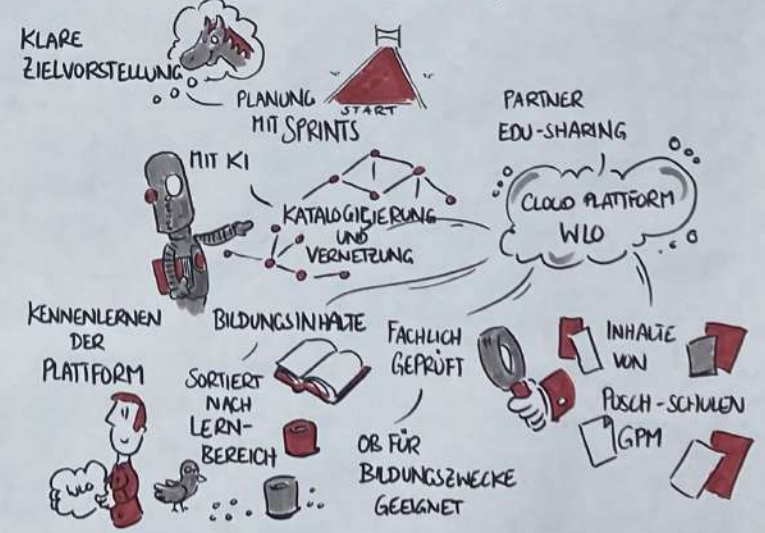 KLARE
ZIELVORSTELLUNG
PLANUNG
MIT SPRINTS
START
PARTNER
EDU-SHARING
CLOUD PLATTFORM
WLO
MIT KI
KATALOGISIERUNG
UND
VERNETZUNG
KENNENLERNEN
DER
PLATTFORM
WLO
BILDUNGSINHALTE
SORTIERT
NACH
LERN-
BEREICH
FACHLICH
GEPRÜFT
OB FÜR
BILDUNGSZWECKE
GEEIGNET
INHALTE
VON
PUSCH-SCHULEN
GPM